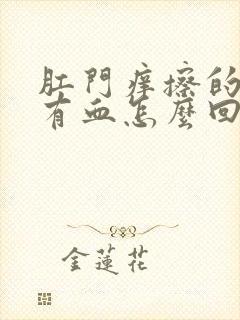 肛門痒擦的
有血怎麼回
金蓮花